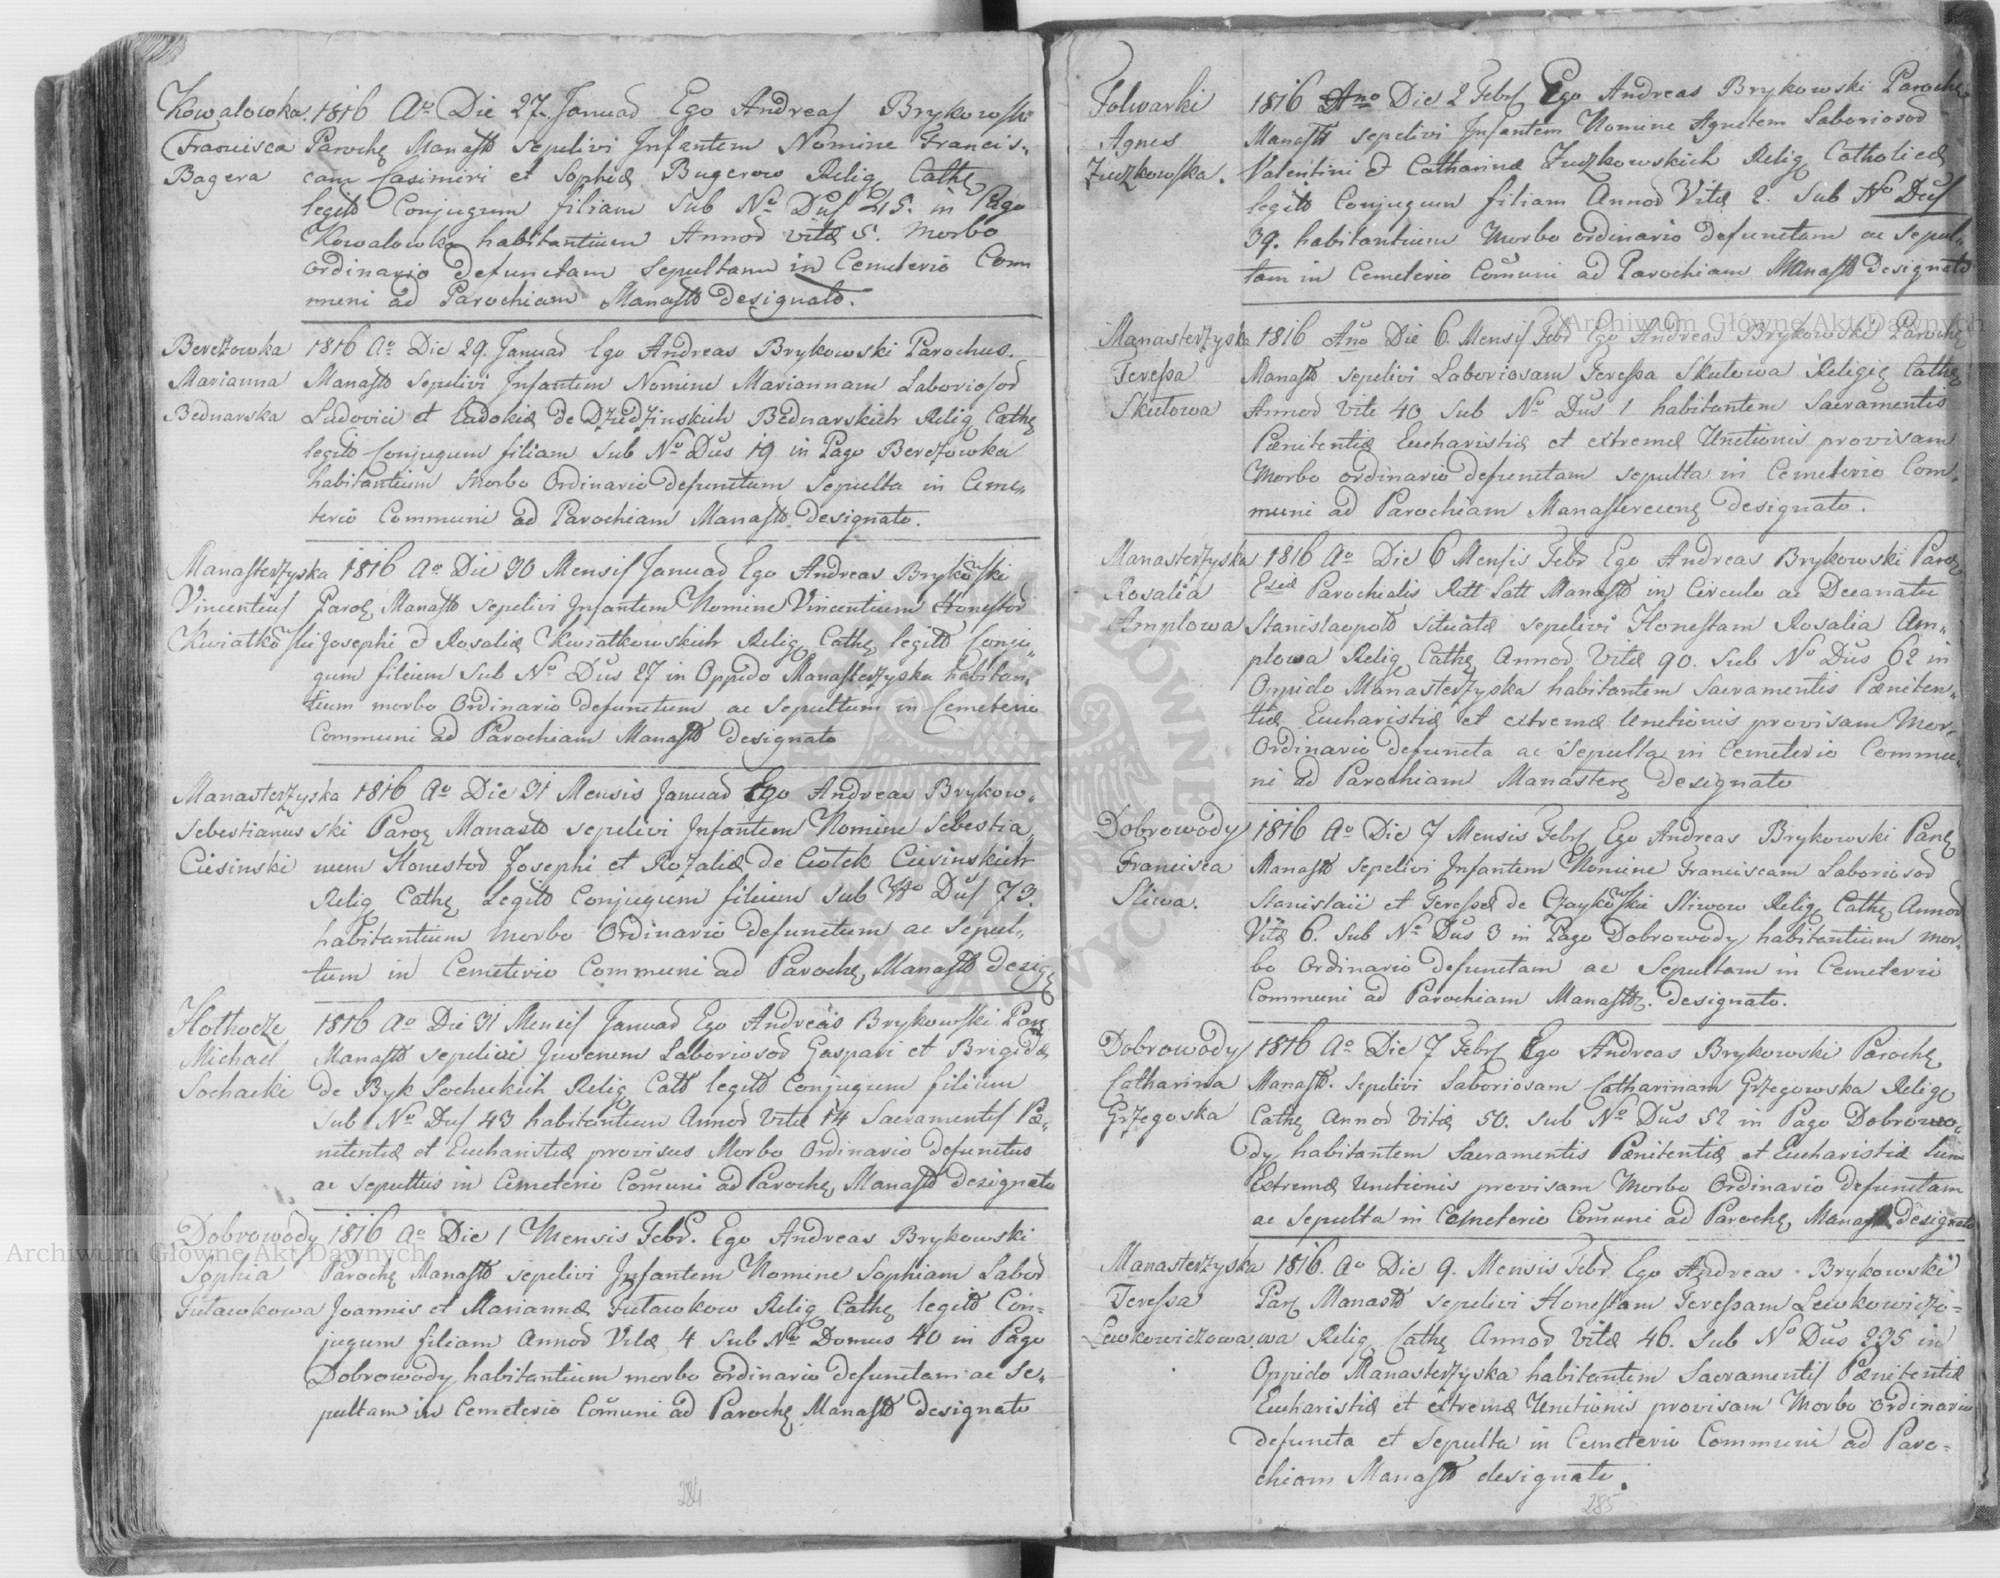 Kowalowka
Francisca
Bagera
1816 Ao Die 27. Januar Ego Andreas Brykowski
Paroch Manast sepelivi Infantem Nomine Francis-
cam Casimiri et Sophiæ Bugerow Relig Cath
legit Conjugum filiam sub No Dus 45. in Pago
Kowalowka habitantium Annor vitæ 5. Morbo
ordinario defunctam sepultam in Cemeterio Com
muni ad Parochiam Manast designato.
Berezowka
Marianna
Bednarska
1816 Ao Die 29. Januar Ego Andreas Brykowski Parochus.
Manast sepelivi Infantem Nomine Mariannam Laborios
Ludovici et Eudokiæ de Dziedzinskich Bednarskich Relig Cath
legit Conjugum filiam sub No Dus 19 in Pago Berezowka
habitantium Morbo Ordinario defunctum sepulta in Ceme-
terio Communi ad Parochiam Manast. designato.
Manasterzyska
Vincentius
Kwiatkoski
1816 Ao Die 30 Mensis Januar Ego Andreas Brykoski
Paroc Manast sepelivi Infantem Nomine Vincentium Honestor
Josephi et Rosaliæ Kwiatkowskich Relig Cath legit Conju-
gum filium sub No Dus 27 in Oppido Manasterzyska habitan-
tium morbo Ordinario defunctum ac sepultum in Cemeterio
Communi ad Parochiam Manast designato
Manasterzyska
Sebestianus
Ciesinski
1816 Ao Die 31 Mensis Januar Ego Andreas Brykow-
ski Paroc Manast sepelivi Infantem Nomine Sebestia
num Honestor Josephi et Rozaliæ de Ciotek Ciesinskich
Relig Cath Legit Conjugum filium sub No Dus 73.
habitantium Morbo Ordinario defunctum ac sepul-
tum in Cemeterio Communi ad Paroch Manast desig
Hothocze
Michael
Sochacki
1816 Ao Die 31 Mensis Januar Ego Andreas Brykowski Par
Manast sepelivi Juvenem Laborios Gaspari et Brigidæ
de Byk Sochackich Relig Cath legit Conjugum filium
sub No Dus 43 habitantium Annor vitæ 14 Sacramentis Pæ-
nitentiæ et Eucharistiæ provisus Morbo Ordinario defunctus
ac sepultus in Cemeterio Comuni ad Paroch Manast designato
Dobrowody
Sophia
Tutawkowa
1816 Ao Die 1 Mensis Febr. Ego Andreas Brykowski
Paroch Manast sepelivi Infantem Nomine Sophiam Labor
Joannis et Mariannæ Tutawkow Relig Cath legit Con-
jugum filiam Annor Vitæ 4 sub No Domus 40 in Pago
Dobrowody habitantium morbo ordinario defunctam ac se-
pultam in Cemeterio Comuni ad Paroch Manast designato
284
Folwarki
Agnes
Zuczkowska.
1816 Ano Die 2 Febr Ego Andreas Brykowski Paroch
Manast sepelivi Infantem Nomine Agnetem Laborios
Valentini et Catharinæ Zuczkowskich Relig Catholicæ
legit Conjugum filiam Annor Vitæ 2. Sub No Dus
39. habitantium Morbo ordinario defunctam ac sepul-
tam in Cemeterio Comuni ad Parochiam Manast designato
Manasterzyska
Teressa
Skutowa
1816 Ano Die 6. Mensis Febr Ego Andreas Brykowski Paroch
Manast sepelivi Laboriosam Teressa Skutowa Religi Cath
Annor Vite 40 Sub No Dus 1 habitantem Sacramentis
Pænitentiæ Eucharistiæ et extremæ Unctionis provisam
Morbo ordinario defunctam sepulta in Cemeterio Com-
muni ad Parochiam Manastercene designato.
Manasterzyska
Rosalia
Amplowa
1816 Ao Die 6 Mensis Febr Ego Andreas Brykowski Paroc
Parochialis Ritt Latt Manast in Circulo ac Decanatu
Stanislaopolt situatæ sepelivi Honestam Rosalia Am-
plowa Relig Cath Annor Vitæ 90. sub No Dus 62 in
Oppido Manasterzyska habitantem Sacramentis Pæniten-
tiæ Eucharistiæ et extremæ Unctionis provisam Mor-
Ordinario defuncta ac sepulta in Cemeterio Commu-
ni ad Parochiam Manaster designato
Dobrowody
Francisca
Sliwa.
1816 Ao Die 7 Mensis Febr Ego Andreas Brykowski Par
Manast sepelivi Infantem Nomine Franciscam Laborios
Stanislaii et Teressæ de Gaykoskie Sliwow Relig Cath Annor
Vitæ 6. Sub No Dus 3 in Pago Dobrowody habitantium mor-
bo Ordinario defunctam ac sepultam in Cemeterio
Communi ad Parochiam Manast. designato.
Dobrowody
Catharina
Grzegoska
1816 Ao Die 7 Febr Ego Andreas Brykowski Paroch
Manast. sepelivi Laboriosam Catharinam Grzegowska Relig
Cath Annor Vitæ 50. sub No Dus 52 in Pago Dobrowo-
dy habitantem Sacramentis Pænitentiæ et Eucharistiæ
Extremæ Unctionis provisam Morbo Ordinario defunctam
ac sepulta in Cemeterio Comuni ad Paroch Manast designato
Manasterzyska
Teressa
Lewkowiczowa
1816. Ao Die 9. Mensis Febr Ego Andreas Brykowski
Par Manast sepelivi Honestam Teressam Lewkowiczo-
wa Relig Cath Annor Vitæ 46. sub No Dus 235 in
Oppido Manasterzyska habitantem Sacramentis Pænitentiæ
Eucharistiæ et extremæ Unctionis provisam Morbo Ordinario
defuncta et sepulta in Cemeterio Communi ad Paro-
chiam Manast designato.
285
Archiwum Główne Akt Dawnych
Archiwum Główne Akt Dawnych